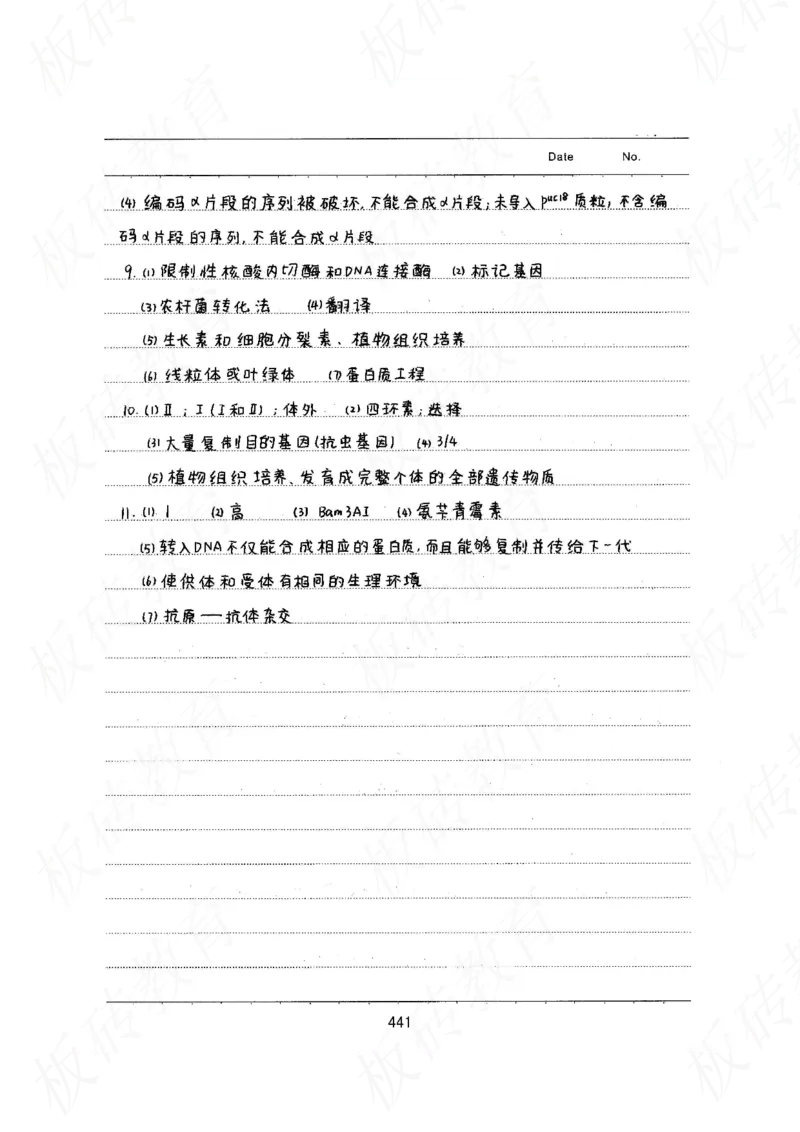 Date No.
(4) 编码α片段的序列被破坏,不能合成α片段;未导入puc18质粒,不含编
码α片段的序列,不能合成α片段
9. (1) 限制性核酸内切酶和DNA连接酶 (2) 标记基因
(3) 农杆菌转化法 (4) 翻译
(5) 生长素和细胞分裂素、植物组织培养
(6) 线粒体或叶绿体 (7) 蛋白质工程
10. (1) Ⅱ;Ⅰ(Ⅰ和Ⅱ);体外 (2) 四环素;选择
(3) 大量复制目的基因(抗虫基因) (4) 3/4
(5) 植物组织培养、发育成完整个体的全部遗传物质
11. (1) 1 (2) 高 (3) Bam3AI (4) 氨苄青霉素
(5) 转入DNA不仅能合成相应的蛋白质,而且能够复制并传给下一代
(6) 使供体和受体有相同的生理环境
(7) 抗原——抗体杂交
441
板砖教育